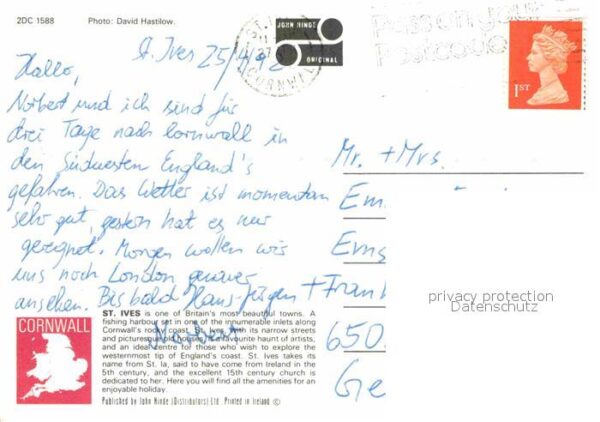 2DC 1588 Photo: David Hastilow.
JOHN HINDE
ORIGINAL
ST. IVES
CORNWALL
Pass on your
Postcode
1ST
St. Ives 25/4/92
Hallo,
Norbert und ich sind für
drei Tage nach Cornwall in
den Südwesten England's
gefahren. Das Wetter ist momentan
sehr gut, gestern hat es nur
geregnet. Morgen wollen wir
uns noch London genauer
ansehen. Bis bald Hans-Jürgen +
Norbert
Mr. + Mrs.
Em
Ems
Frank
650
Ge
privacy protection
Datenschutz
CORNWALL
ST. IVES is one of Britain's most beautiful towns. A
fishing harbour set in one of the innumerable inlets along
Cornwall's rocky coast. St. Ives with its narrow streets
and picturesque old houses is a favourite haunt of artists,
and an ideal centre for those who wish to explore the
westernmost tip of England's coast. St. Ives takes its
name from St. Ia, said to have come from Ireland in the
5th century, and the excellent 15th century church is
dedicated to her. Here you will find all the amenities for an
enjoyable holiday.
Published by John Hinde (Distributors) Ltd. Printed in Ireland ©